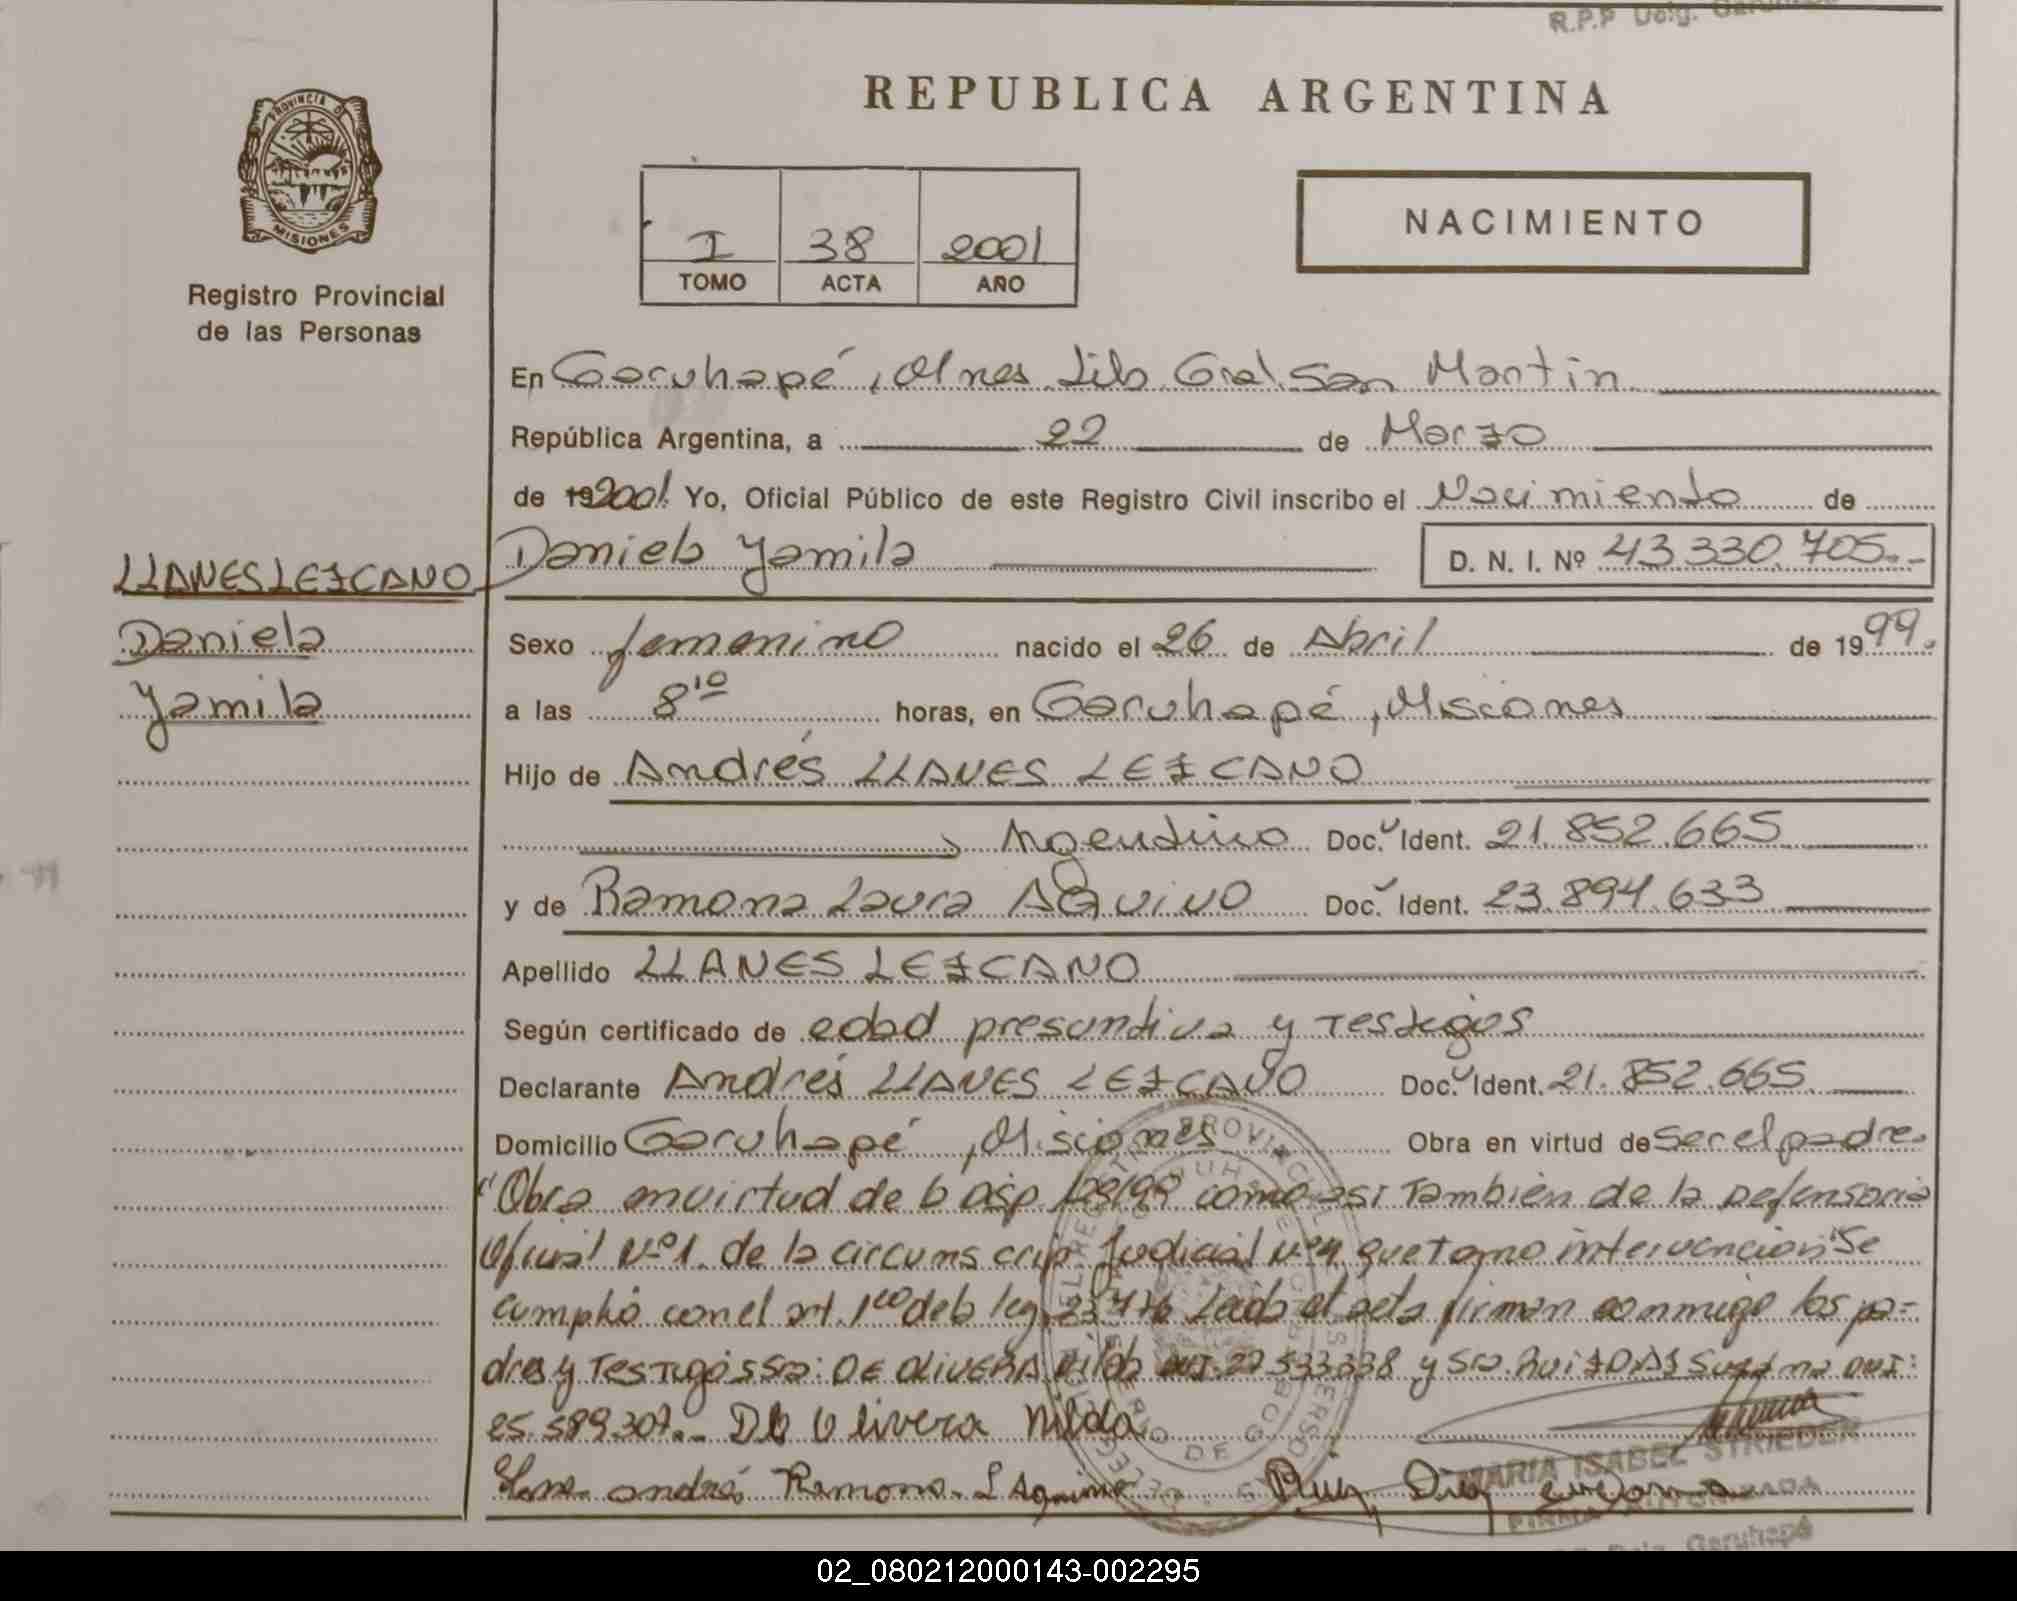 R.P.P Delg. Garuhapé
REPUBLICA ARGENTINA
PROVINCIA DE
MISIONES
Registro Provincial
de las Personas
I 38 2001
TOMO ACTA AÑO
NACIMIENTO
En Garuhapé, Mnes Lib. Gral. San Martin
República Argentina, a 22 de Marzo
de 19 2001 Yo, Oficial Público de este Registro Civil inscribo el Nacimiento de
LLANES LEZCANO
Daniela
Yamila
Daniela Yamila D. N. I. Nº 43.330.705.-
Sexo femenino nacido el 26 de Abril de 1999.
a las 8 10 horas, en Garuhapé, Misiones
Hijo de Andrés LLANES LEZCANO
Argentino Doc. Ident. 21.852.665
y de Ramona Laura AQUINO Doc. Ident. 23.894.633
Apellido LLANES LEZCANO
Según certificado de edad presuntiva y Testigos
Declarante Andrés LLANES LEZCANO Doc. Ident. 21.852.665
Domicilio Garuhapé, Misiones Obra en virtud de ser el padre.
"Obra en virtud de la Disp. como asi También de la Defensoria
Oficial Nº1. de la circunscrip Judicial Nº4 que tomo intervencion" Se
cumplió con el art. 1ro de la ley 23.776 Leida el acta firman conmigo los pa-
dres y Testigos Sra: DE OLIVERA Nilda DNI. 22.533.338 y Sra. Ruiz DIAZ Susana DNI:
25.589.307.- De Olivera Nilda
Llanes andrés Ramona L Aquino Ruiz Diaz Susana
MARIA ISABEL STRIEDER
FIRMA AUTORIZADA
Delg. Garuhapé
02_080212000143-002295